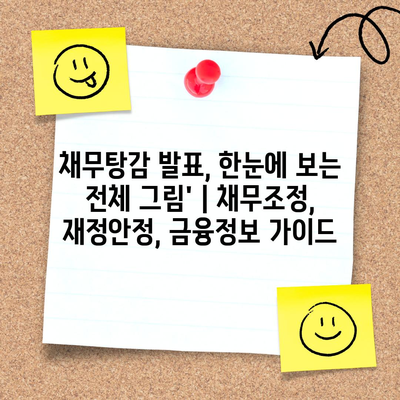 채무탕감 발표, 한눈에 보는
전체 그림' | 채무조정,
재정안정, 금융정보 가이드